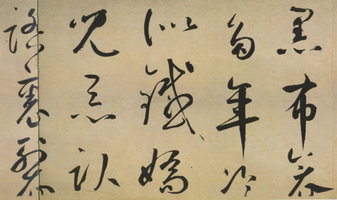 黑布衾
多年冷
似鐵嬌
兒惡臥
踏裏裂